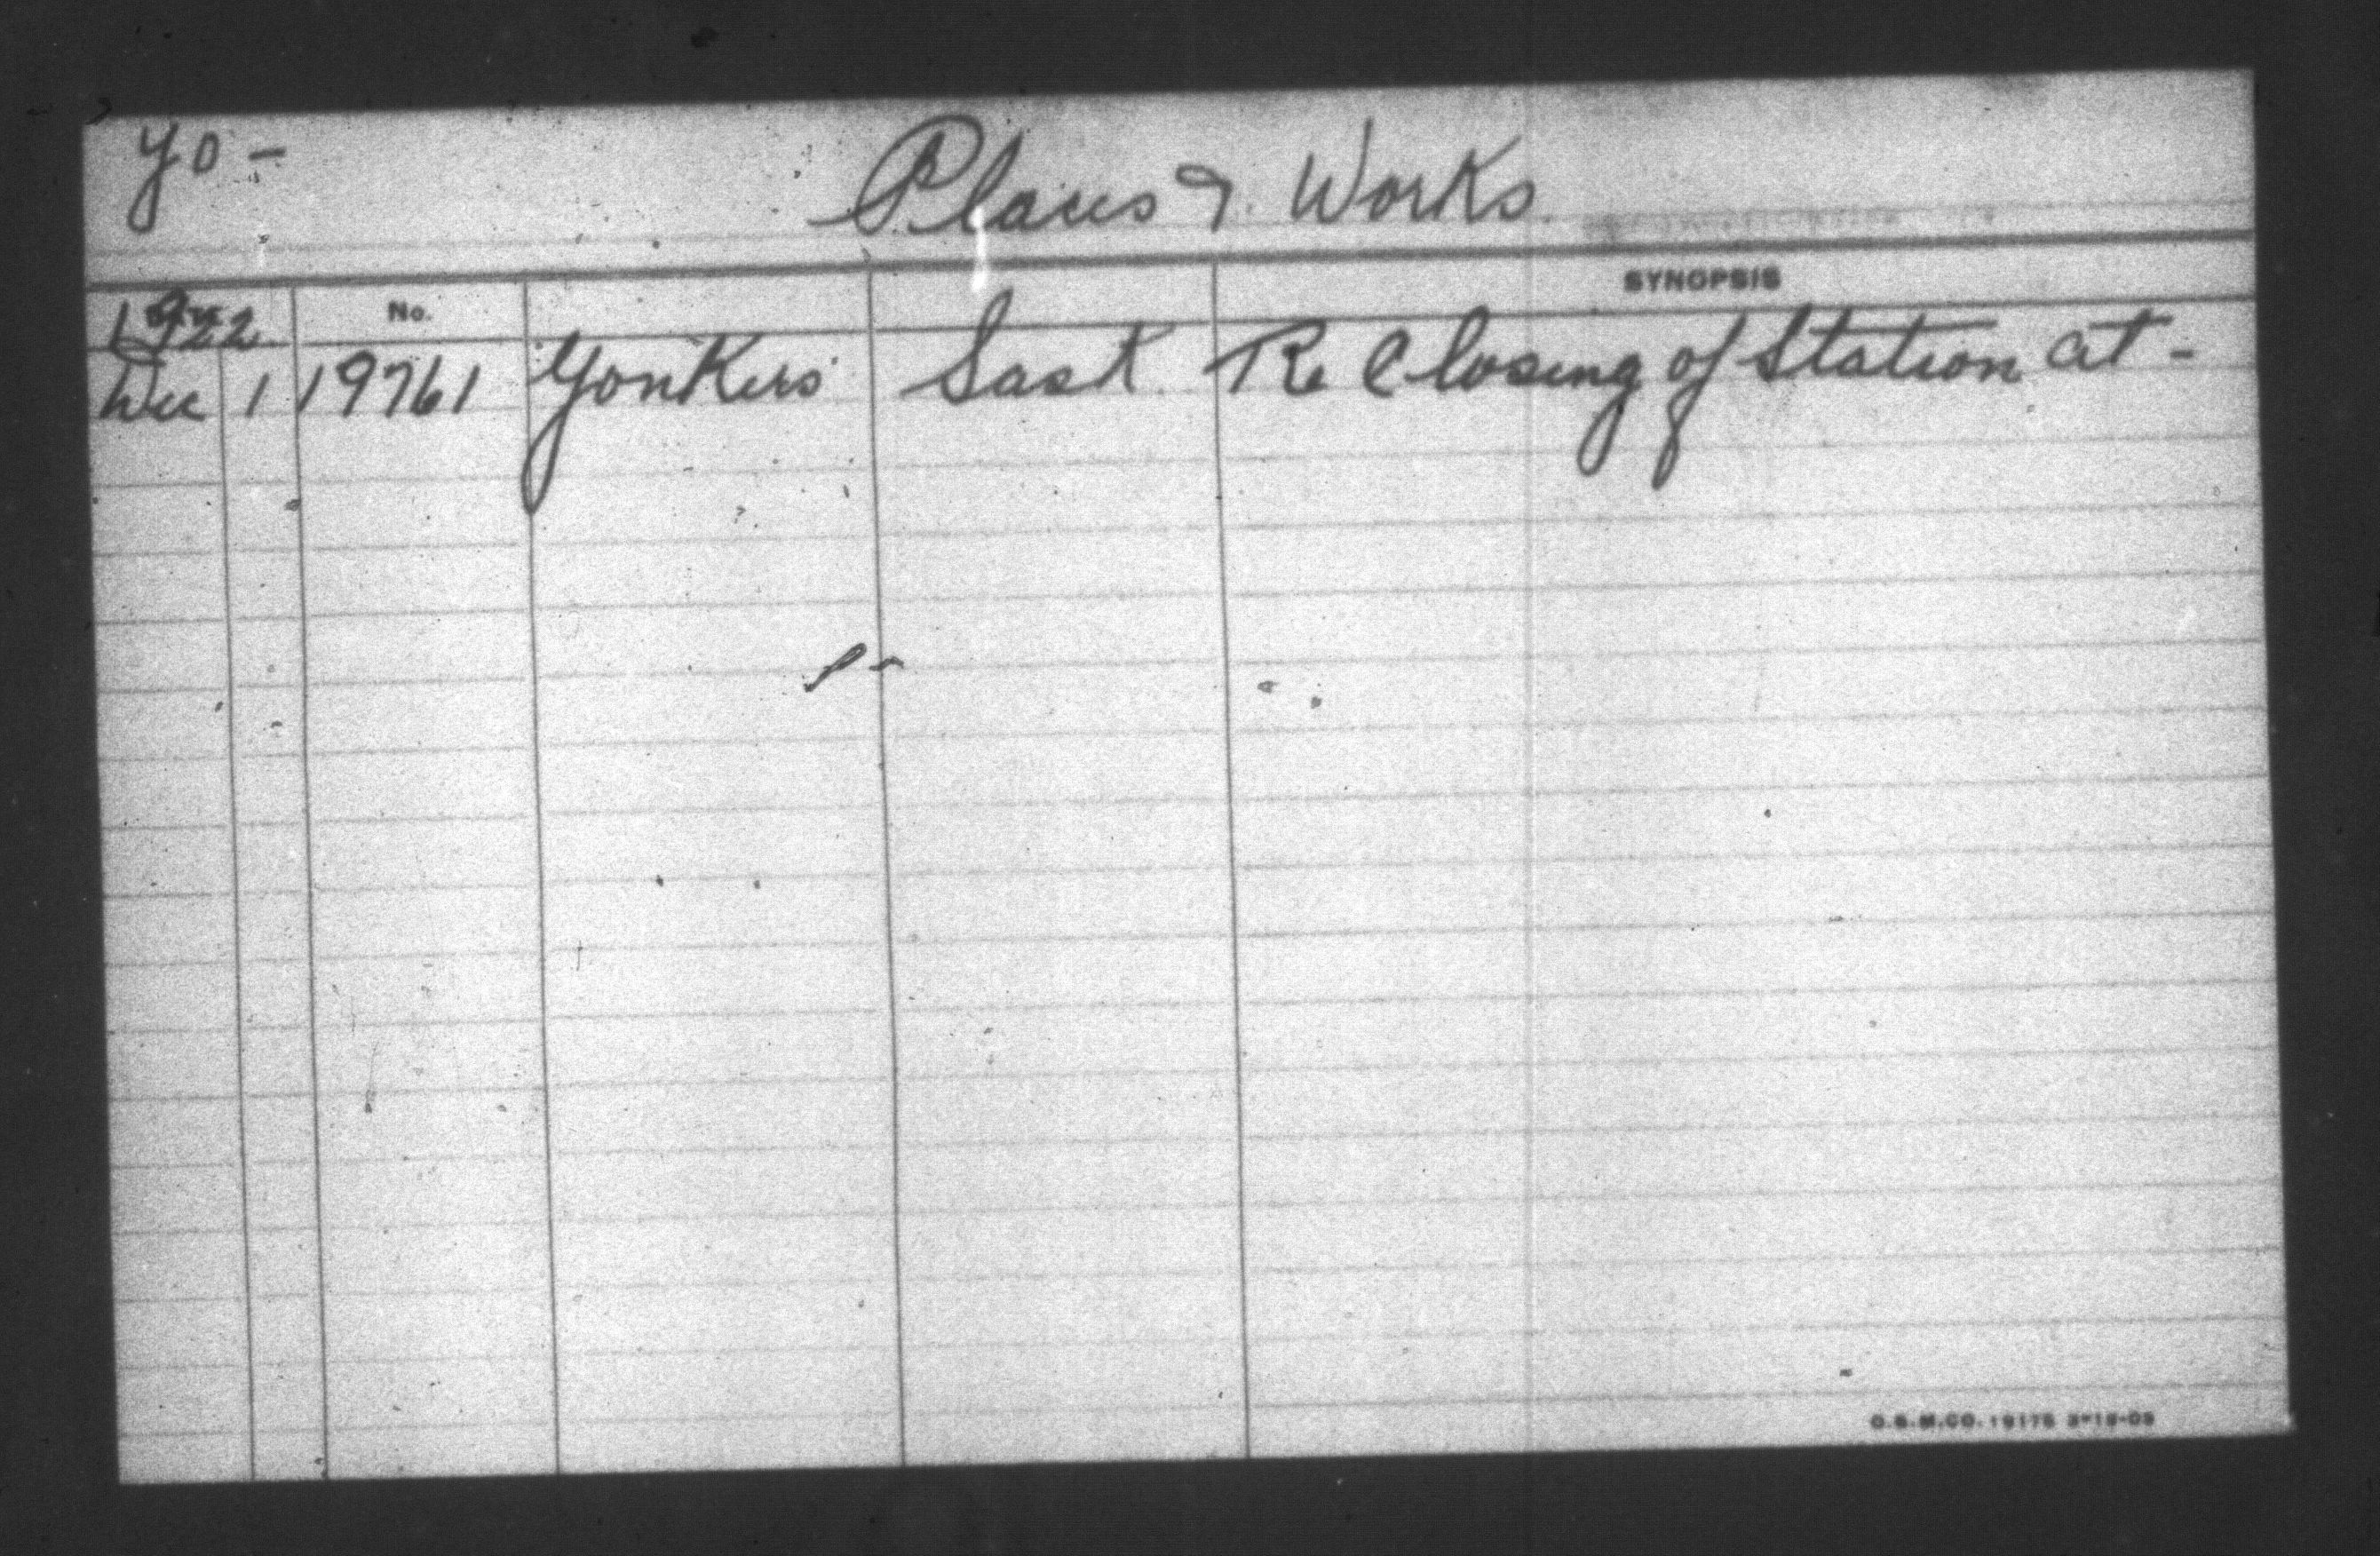 Yo -
Places & Works
SYNOPSIS
No.
1922
Dec 1 19761 Yonkers Sask Re Closing of Station at -
O.S.M.CO. 19176 3-15-05